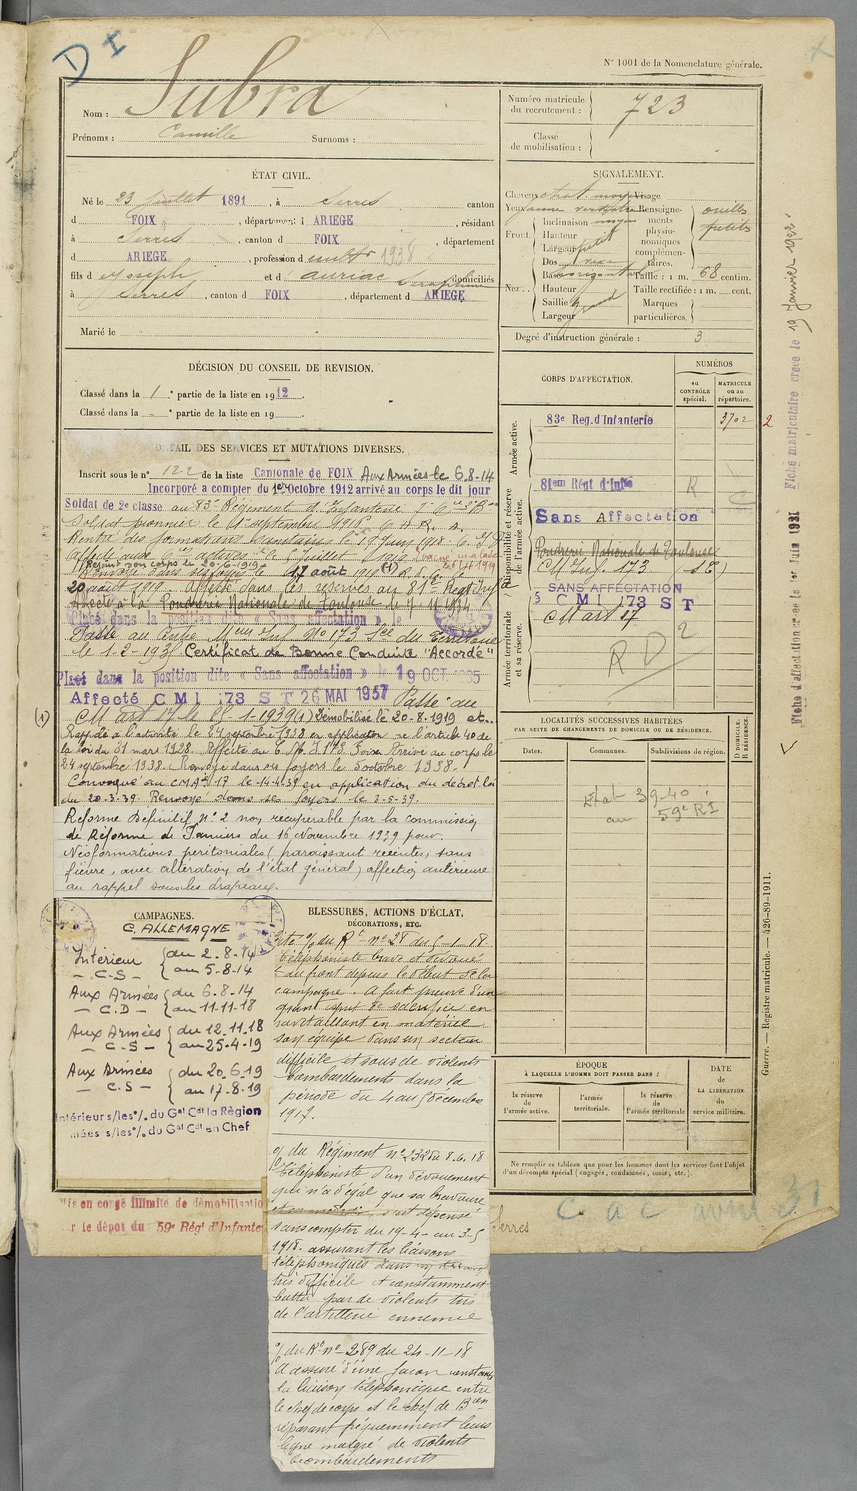 D I
N° 1001 de la Nomenclature générale.
Nom : Subra
Prénoms : Camille Surnoms :
ÉTAT CIVIL.
Né le 23 juillet 1891, à Serres, canton
d FOIX, département d ARIEGE, résidant
à Serres, canton d FOIX, département
d ARIEGE, profession d 1938
fils d Joseph et d Auriac Séraphine domiciliés
à Serres, canton d FOIX, département d ARIEGE
Marié le
DÉCISION DU CONSEIL DE REVISION.
Classé dans la 1 e partie de la liste en 1912.
Classé dans la - e partie de la liste en 19
DÉTAIL DES SERVICES ET MUTATIONS DIVERSES.
Inscrit sous le n° 122 de la liste Cantonale de FOIX Aux Armées le 6.8-14
Incorporé a compter du 1er Octobre 1912 arrivé au corps le dit jour
Soldat de 2e classe au 83e Régiment d'Infanterie
Soldat pionnier le 1er septembre 1916.
Rentré des formations
affecté 6e juillet 1919
Rejoint son corps le 20-6-1919
Renvoyé dans ses foyers le 17 août 1919 (1)
20 août 1919. Affecté dans les réserves au 81e Régt Inf
Affecté à la Poudrerie Nationale de Toulouse le 7-11-1934
Placé dans la position dite « Sans affectation » le
Passé au Centre Meur Inf No 173 Sec du Territoire
le 1-2-193 Certificat de Bonne Conduite "Accordé"
Placé dans la position dite « Sans affectation » le 19 OCT
Affecté C M I 173 S T 26 MAI 1937 Passé au
CM art 17 le 1-1939 (1) Démobilisé le 20-8-1919 et..
Rappelé à l'activité le 24 septembre 1938 en application de l'article 40 de
la loi du 31 mars 1928. Affecté au C.M.I 173 Foix. Arrivé au corps le
24 septembre 1938. Renvoyé dans ses foyers le 5 octobre 1938.
Convoqué au CMA 17 le 14-4-39 en application du décret loi
du 20-3-39. Renvoyé dans ses foyers le 2-5-39.
Réforme définitif n° 2 non récupérable par la commission
de Réforme de Pamiers du 16 Novembre 1939 pour.
Néoformations péritoniales (paraissant récentes, sans
fièvre, avec altération de l'état général) affection antérieure
au rappel sous les drapeaux.
CAMPAGNES.
C. ALLEMAGNE
Intérieur du 2-8-14
- C.S - au 5-8-14
Aux Armées du 6-8-14
- C.D - au 11-11-18
Aux Armées du 12.11.18
- C.S - au 25-4-19
Aux Armées du 20.6.19
- C.S - au 17-8-19
Intérieur s/les° /. du Gal Cdt la Région
mées s/les° /. du Gal Cdt en Chef
BLESSURES, ACTIONS D'ÉCLAT,
DÉCORATIONS, ETC.
Cité % du Rt n° 28 du 5-1-18
Téléphoniste brave et dévoué
au front depuis le début de la
campagne. A fait preuve d'un
grand esprit de sacrifice en
ravitaillant en matériel
son équipe dans un secteur
difficile et sous de violents
bombardements dans la
période du 4 au 5 décembre
1917.
% du Régiment n° 232 du 8.6.18
Téléphoniste d'un dévouement
qui n'a d'égal que sa bravoure
et sa modestie, s'est dépensé
sans compter du 19-4- au 3-5
1918. assurant les liaisons
téléphoniques dans un terrain
très difficile et constamment
battu par de violents tirs
de l'artillerie ennemie
% du Rt n° 289 du 24-11-18
A assuré d'une façon constante
la liaison téléphonique entre
le chef de corps et le chef de Bon
réparant fréquemment leurs
ligne malgré de violents
bombardements
Mis en congé illimité de démobilisation
r le dépot du 59e Régt d'Infante
Serres
Numéro matricule du recrutement : 723
Classe de mobilisation :
SIGNALEMENT.
Cheveux chat. moyen Visage
Yeux jaune verdâtre
Front. Inclinaison moyen
Hauteur
Largeur petit
Nez. Dos vexe
Base
Hauteur
Saillie grand
Largeur
Renseignements physionomiques complémentaires. oreilles petites
Taille : 1 m. 68 centim.
Taille rectifiée : 1 m. cent.
Marques particulières.
Degré d'instruction générale : 3
CORPS D'AFFECTATION.
NUMÉROS
au CONTRÔLE spécial.
MATRICULE ou au répertoire.
Armée active.
83e Reg. d'Infanterie 3702 2
Disponibilité et réserve de l'armée active.
81em Régt d'Infie R
Sans Affectation
Poudrerie Nationale de Toulouse
C M Inf. 173 (S T)
Armée territoriale et sa réserve.
SANS AFFECTATION
C M I 173 S T
CM art 17
R D 2
LOCALITÉS SUCCESSIVES HABITÉES
PAR SUITE DE CHANGEMENTS DE DOMICILE OU DE RÉSIDENCE.
Dates. Communes. Subdivisions de région. D DOMICILE. R RÉSIDENCE.
Etat 39-40
au 59e RI
ÉPOQUE
À LAQUELLE L'HOMME DOIT PASSER DANS :
la réserve de l'armée active.
l'armée territoriale.
la réserve de l'armée territoriale
DATE de LA LIBÉRATION du service militaire.
Ne remplir ce tableau que pour les hommes dont les services font l'objet
d'un décompte spécial (engagés, condamnés, omis, etc.).
C a C avril 31
Guerre. — Registre matricule. — 426-89-1911.
Fiche d'affectation creee le 1er Juin 1931 Fiche matriculaire creee le 19 Janvier 1922